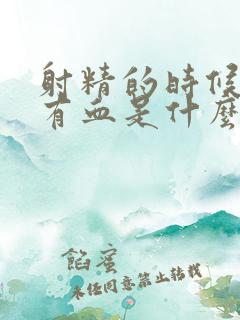 射精的時候
有血是什麼
餡蜜
未任同意禁止转载